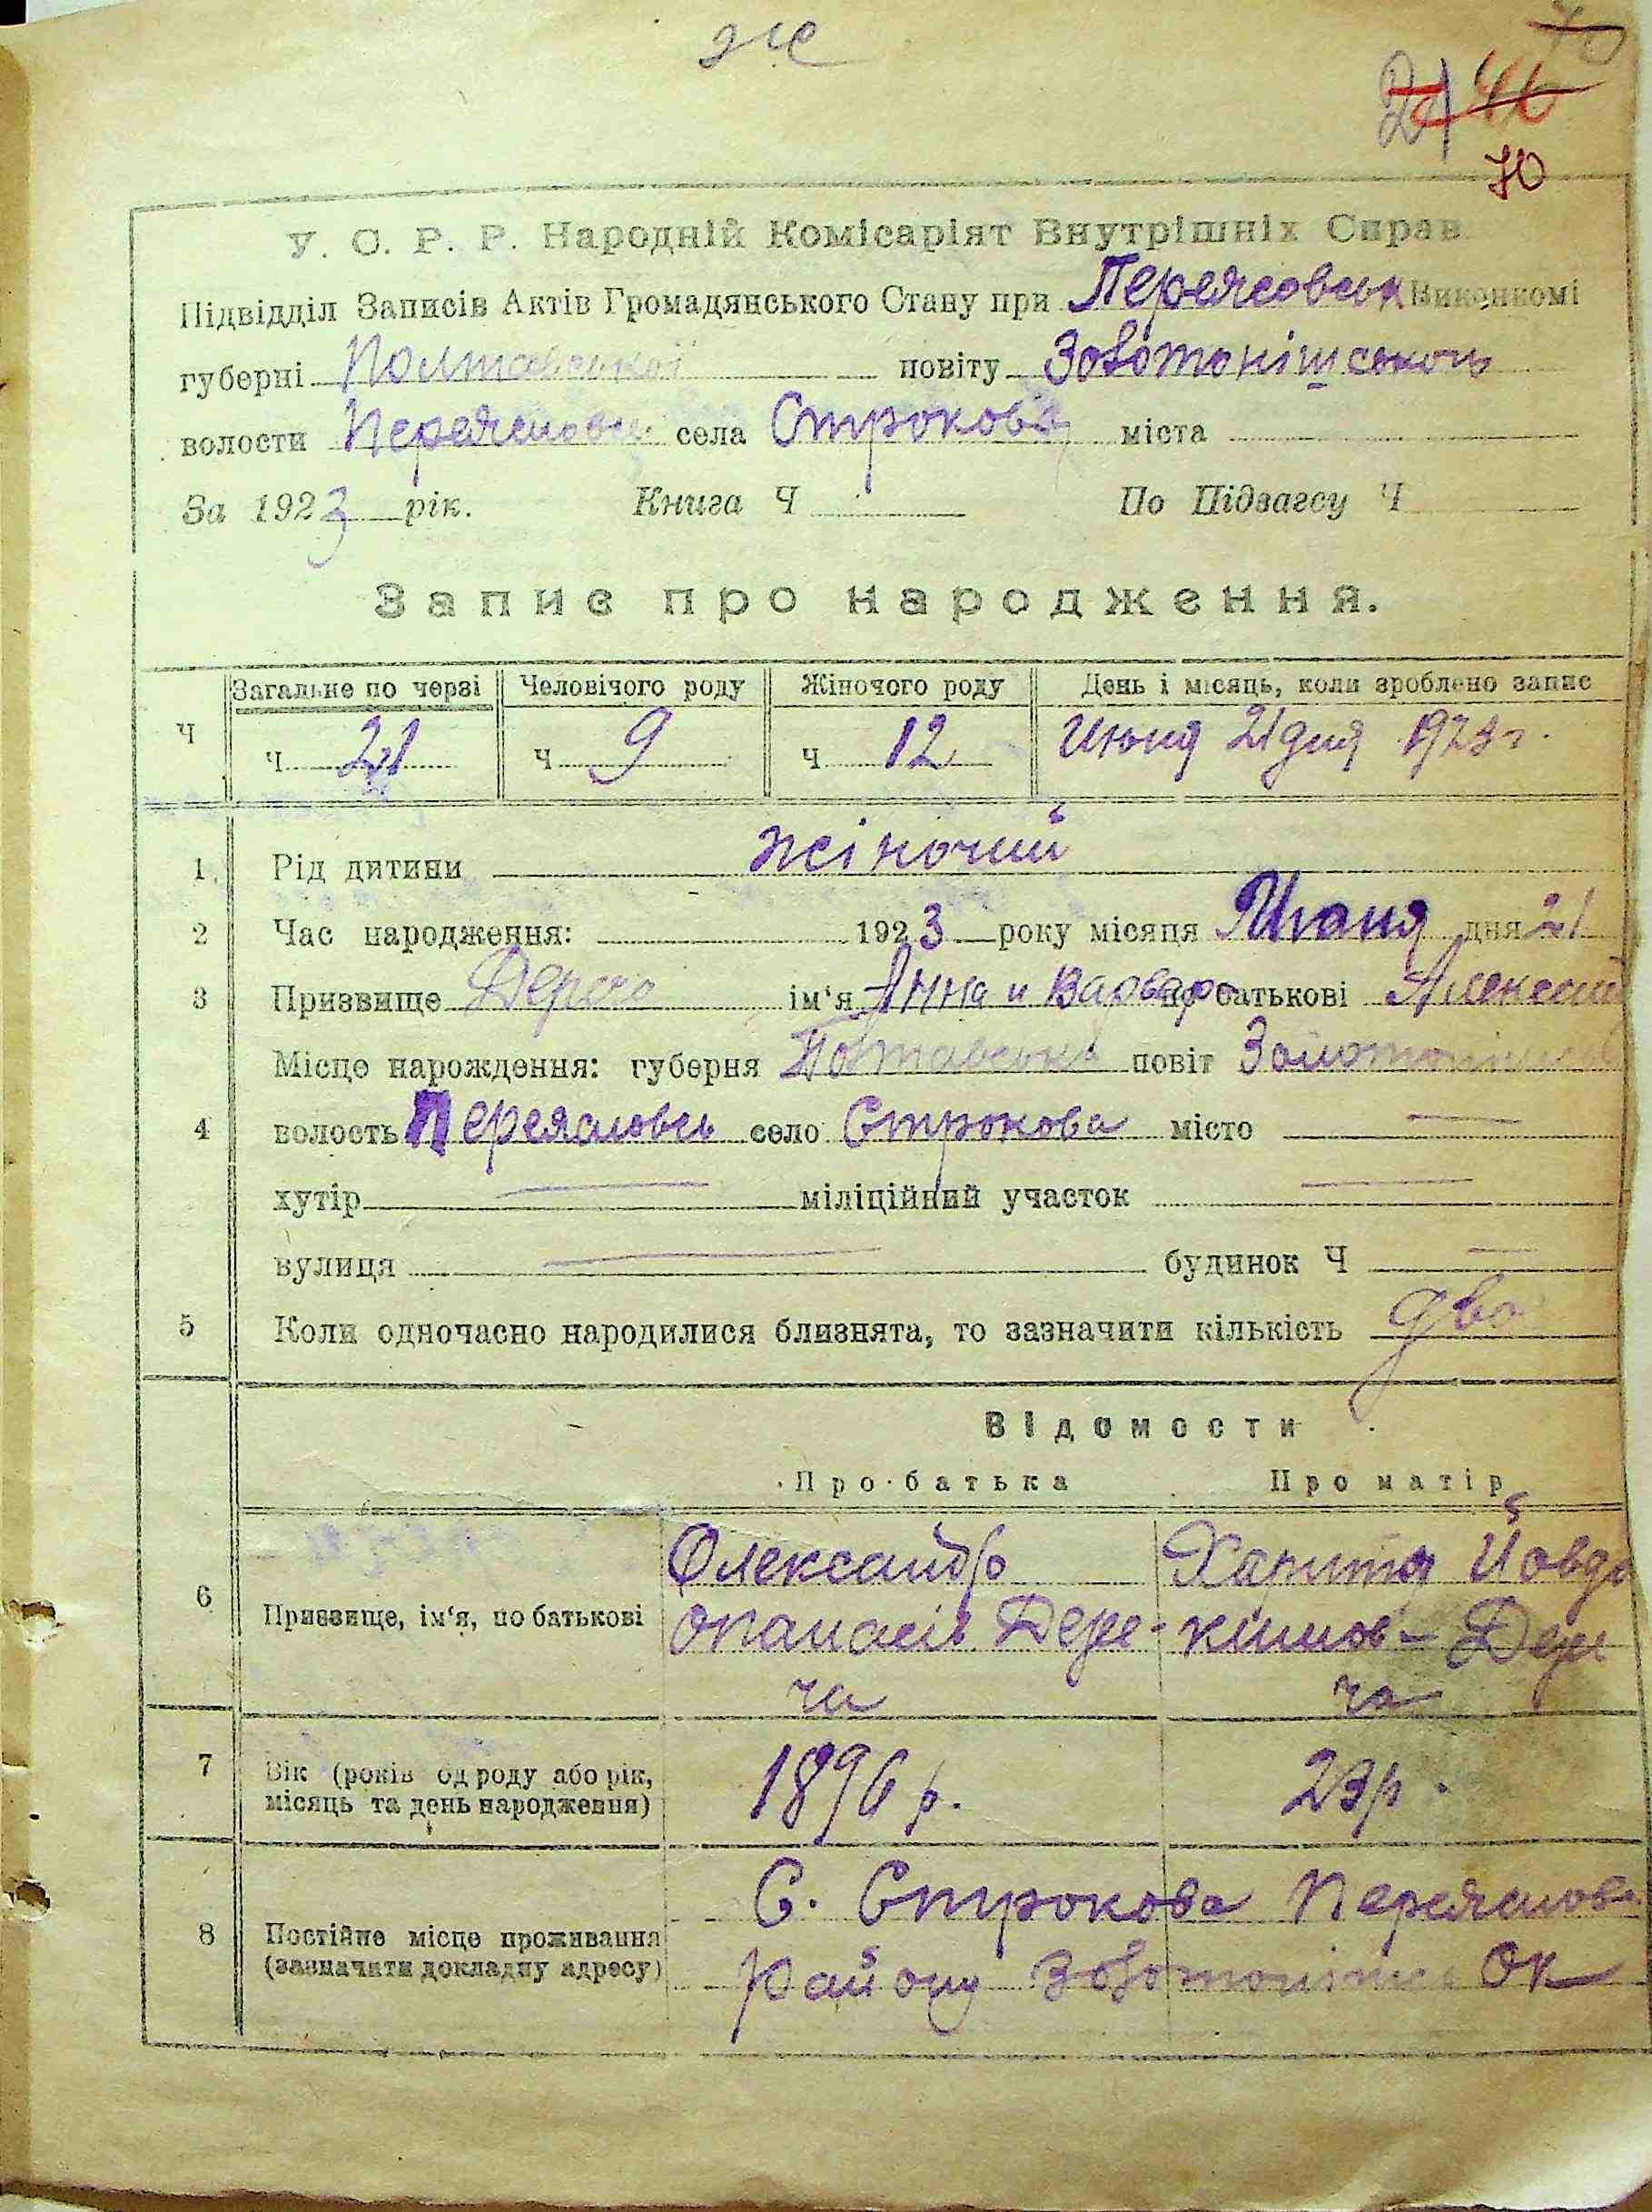 ж
70
У. С. Р. Р. Народній Комісаріят Внутрішніх Справ.
Підвідділ Записів Актів Громадянського Стану при Виконкомі
губерні Полтавської повіту Зовотонішського
волости села Строкова міста
За 1923 рік. Книга Ч По Підзагсу Ч
Запис про народження.
Загальне по черзі Человічого роду Жіночого роду День і місяць, коли зроблено запис
Ч Ч 21 Ч 9 Ч 12 Июня 21 дня 1923 г.
1. Рід дитини жіночий
2 Час народження: 1923 року місяця Июня дня 21
3 Призвище ім'я Анна и Варвара по батькові
Місце нарождення: губерня повіт
4 волость Переясловсь село Строкова місто —
хутір — міліційний участок —
вулиця — будинок Ч —
5 Коли одночасно народилися близнята, то зазначити кількість двоє
Відомости
Про батька Про матір
Олександр Харитя Йовдо
6 Призвище, ім'я, по батькові Опанасів Дере- кимов - Дере
ча ча
7 Вік (років од роду або рік, 1896 р. 23 р.
місяць та день народження)
С. Строкова Переяслов
8 Постійне місце проживання
(зазначити докладну адресу) Району Ок